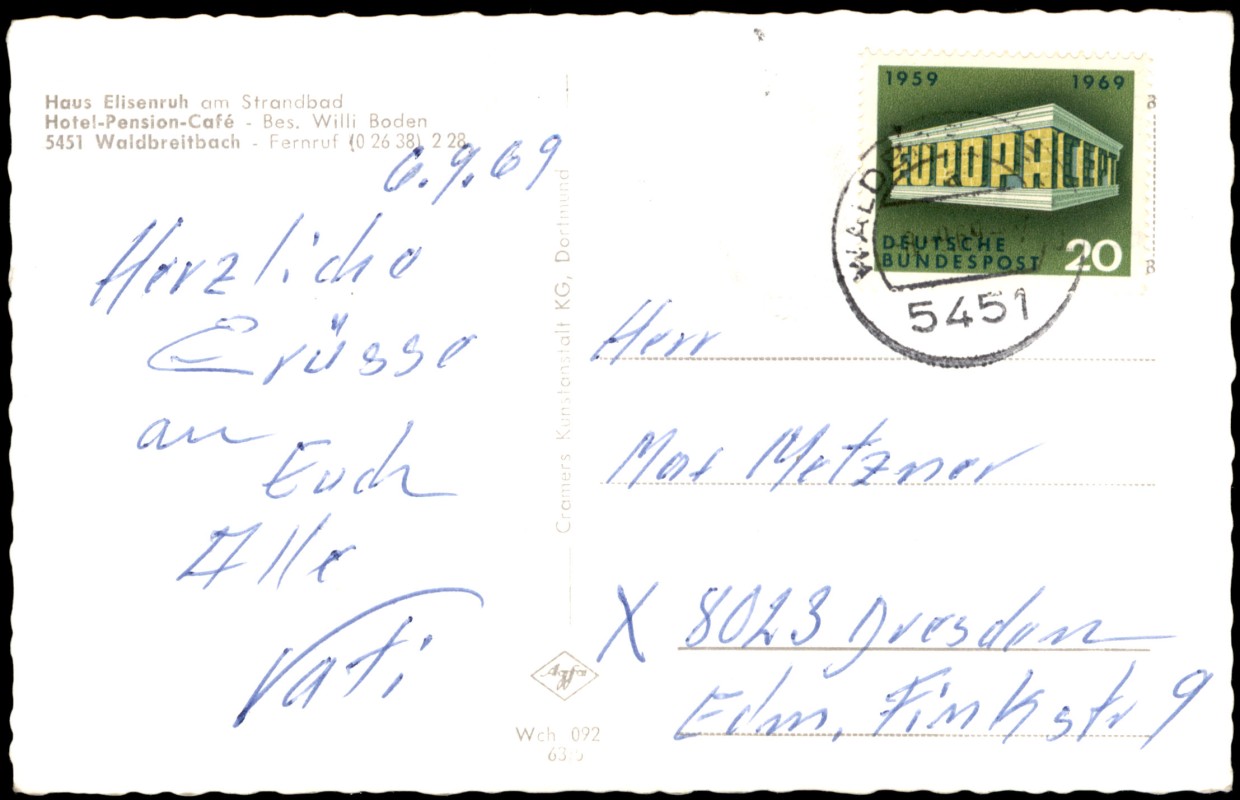 Haus Elisenruh am Strandbad
Hotel-Pension-Café - Bes. Willi Boden
5451 Waldbreitbach - Fernruf (0 26 38) 2 28
6.9.69
Herzliche
Grüsse
an
Euch
Alle
Vati
Cramers Kunstanstalt KG, Dortmund
Agfa
Wch 092
1959 1969
EUROPA CEPT
DEUTSCHE
BUNDESPOST 20
5451
Herr
Max Metzner
X 8023 Dresden
Edm. Finkstr 9